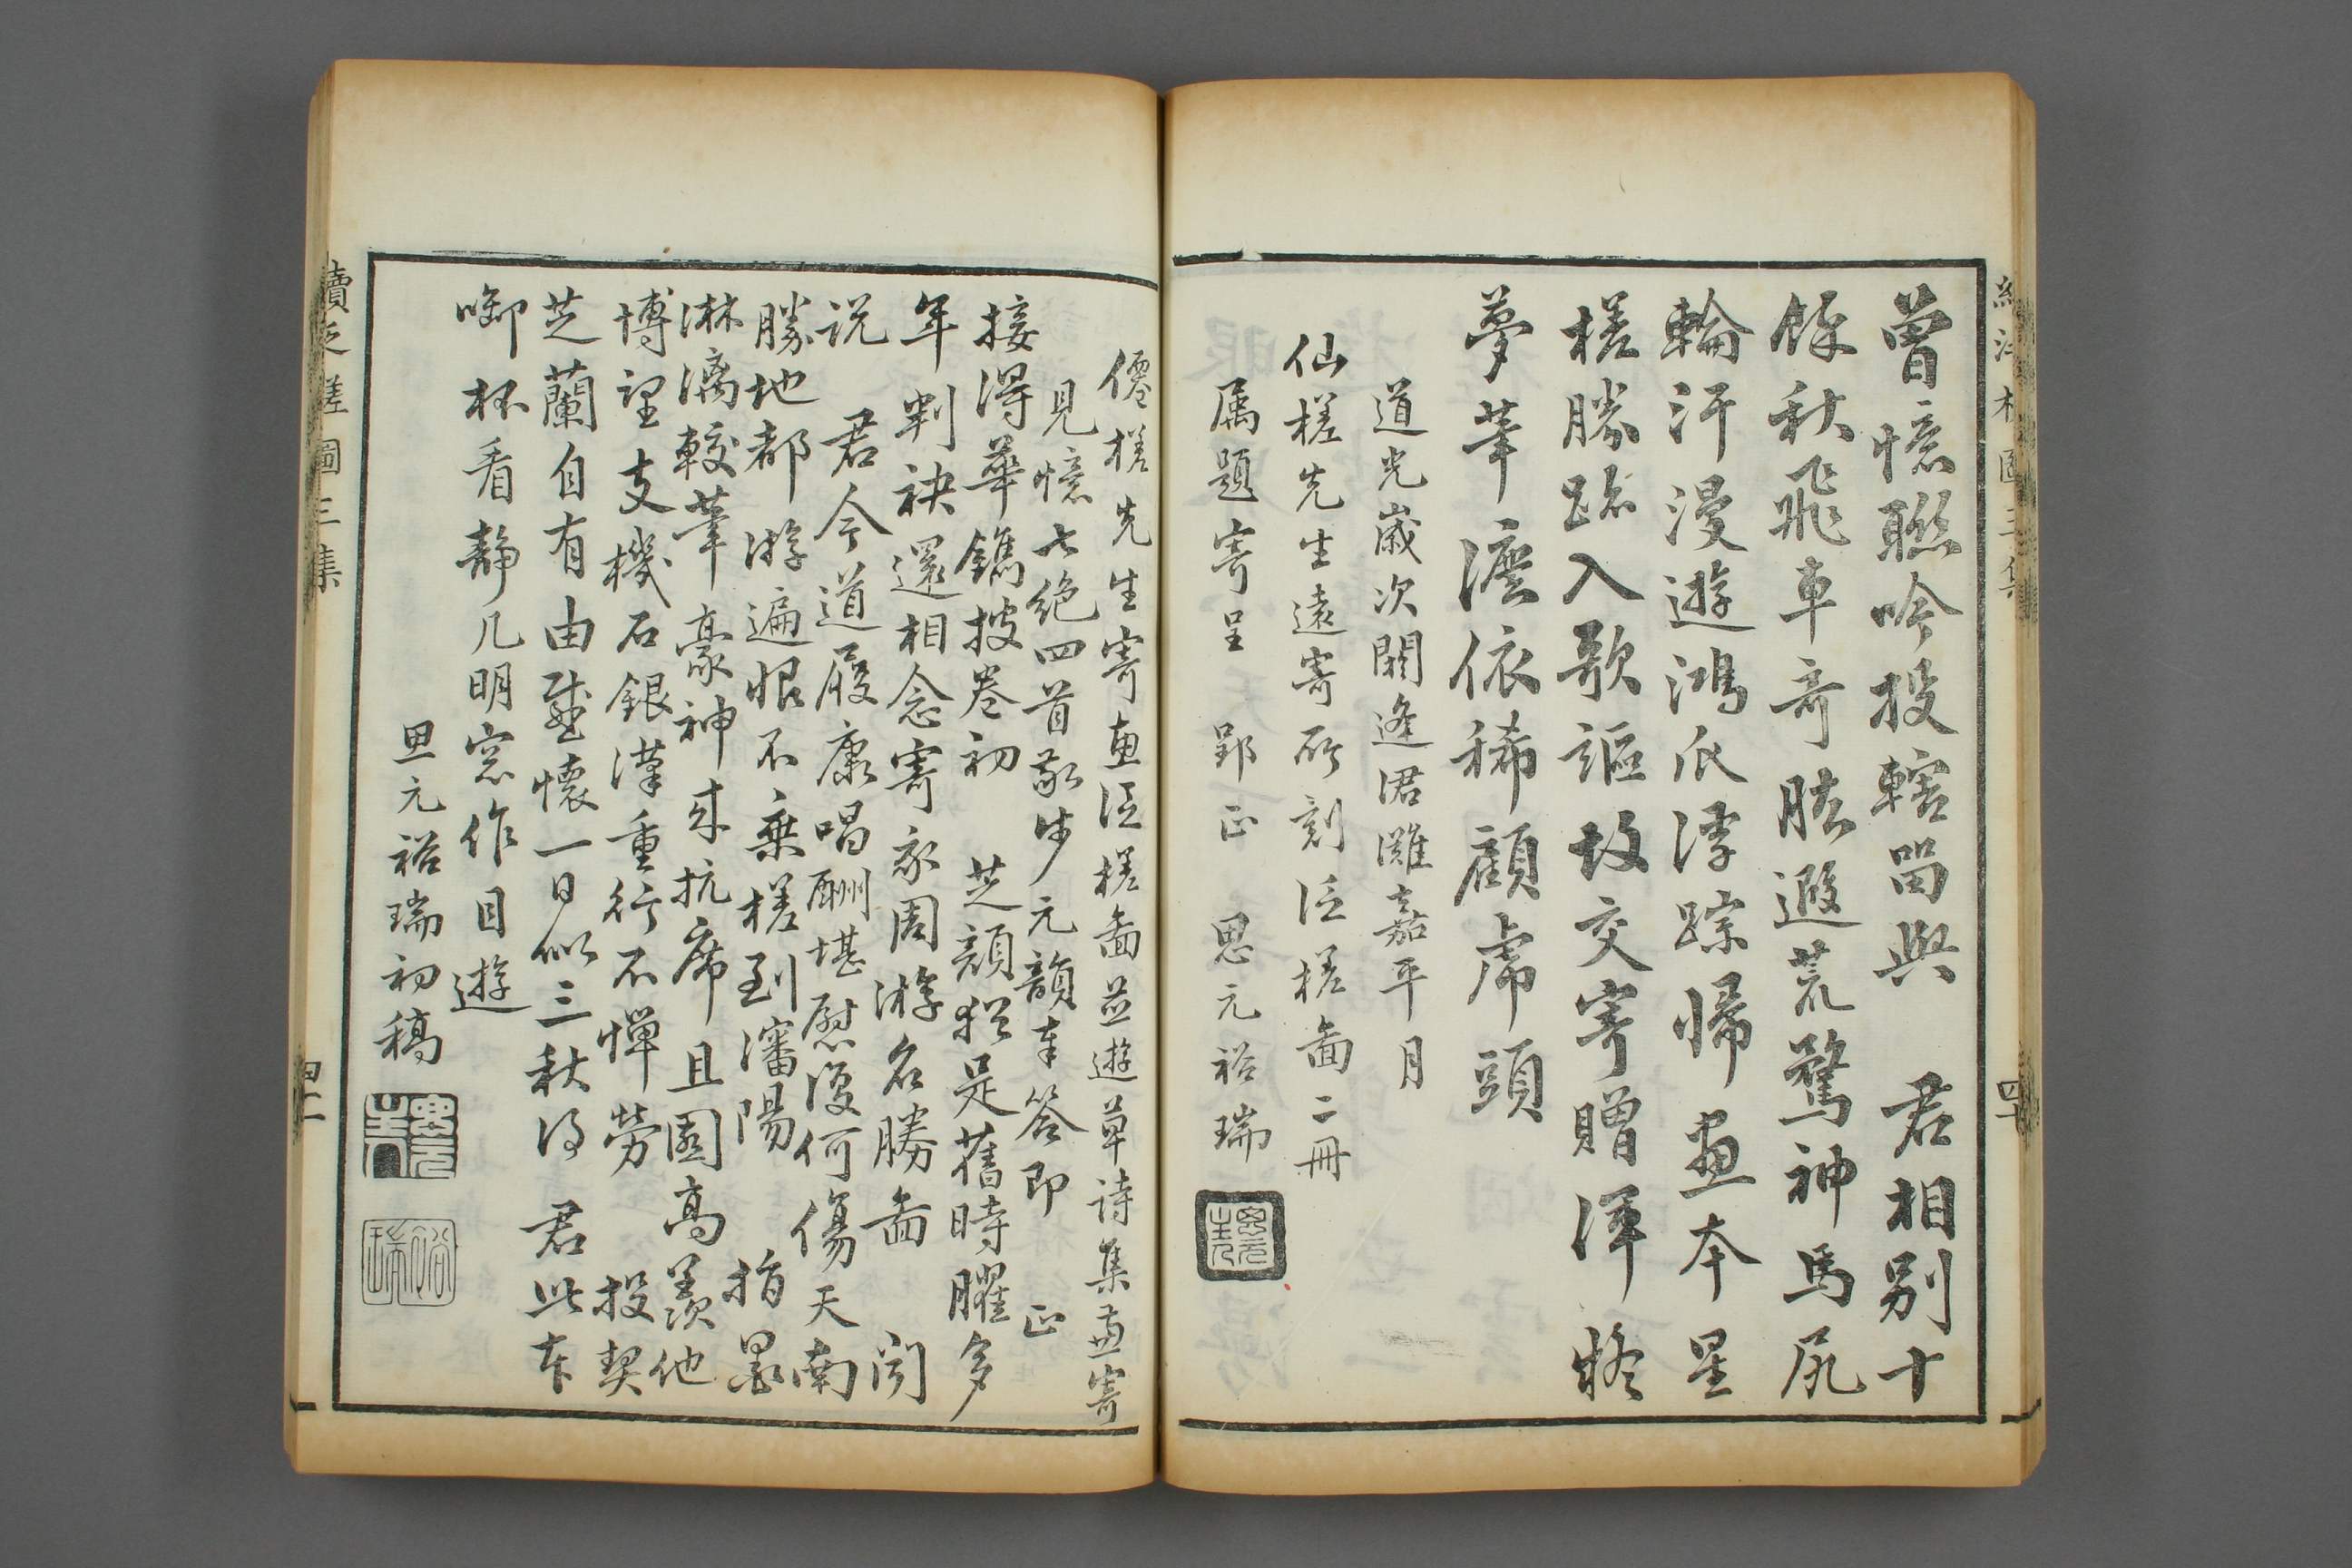 曾憶聯吟投轄留與　君相別十
餘秋飛車奇肱遐荒驚神馬尻
輪汗漫遊鴻爪浮踪歸畫本星
槎勝跡入歌謳故交寄贈渾
夢筆澐依稀顧虎頭
道光歲次閼逢涒灘嘉平月
仙槎先生遠寄所刻泛槎圖二冊
属題寄呈　郢正　思元裕瑞
僊槎先生寄惠泛槎啚並遊草詩集兼寄
見憶七絕四首敬步元韻奉答即　正
接得華鐫披卷初　芝顏猶是舊時臞多
年判袂還相念寄示周游名勝啚　聞
说　君今道履康唱酬堪慰復何傷天南
勝地都游遍恨不乗槎到瀋陽　指墨
淋漓較筆豪神來抗席且園高羨他
博望支機石銀漢重行不惮勞　投契
芝蘭自有由愁懷一日似三秋得　君此本
啣杯看靜几明窓作目遊
思元裕瑞初稿
續泛槎圖三集
四十
四十一